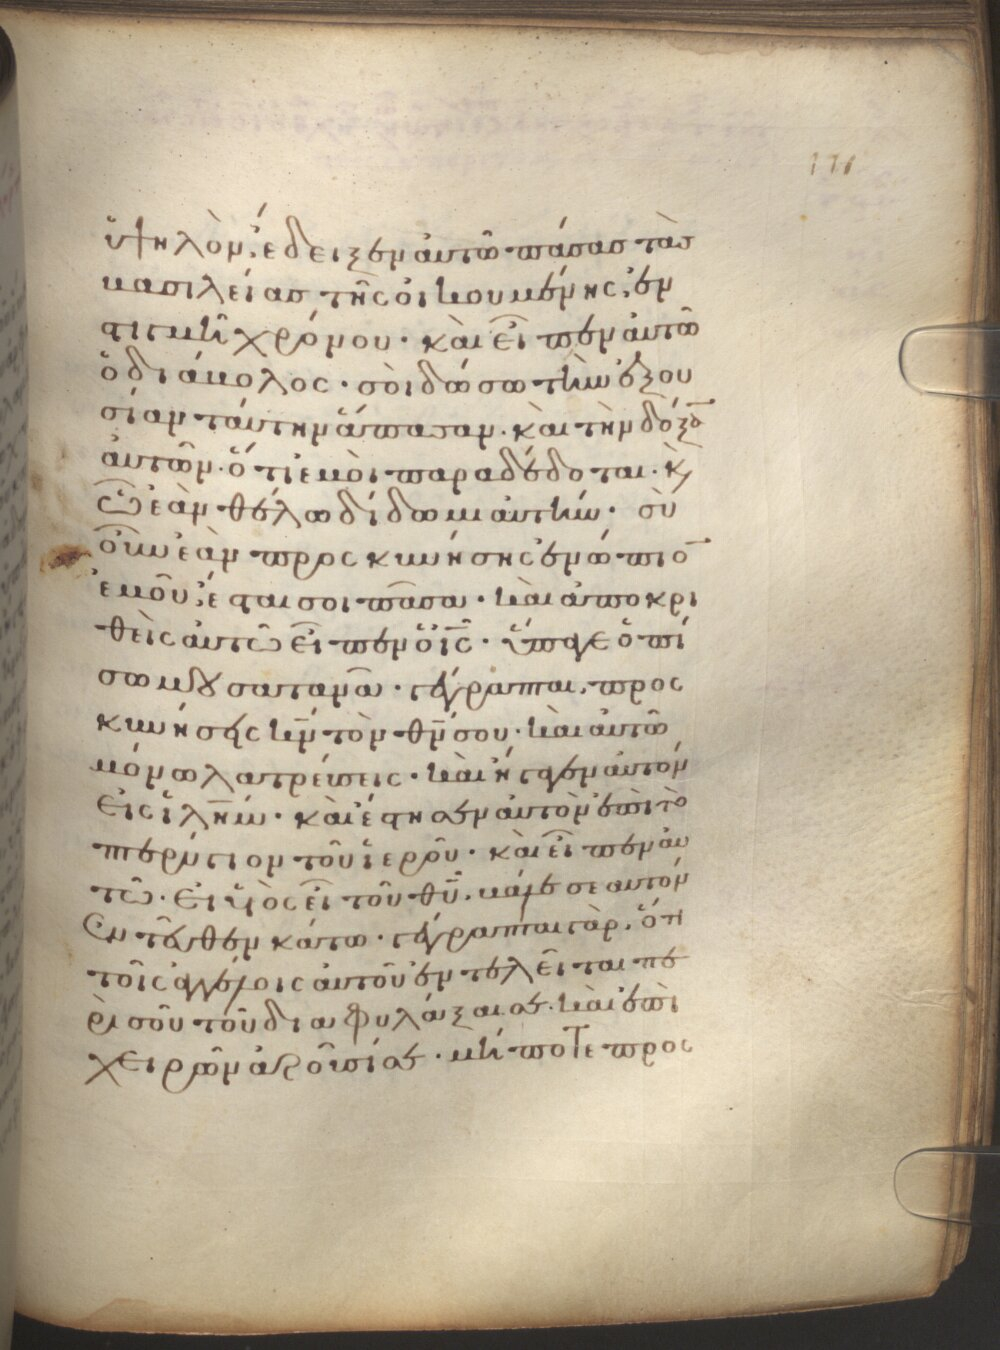 116
ὑψηλὸν, ἔδειξεν αὐτῶ πάσας τὰσ
βασιλείας τῆς οἰκουμένης, ἐν
στιγμῆ χρόνου· καὶ εἶπεν αὐτῶ
ὁ διάβολος· σοὶ δώσω τὴν ἐξου
σίαν ταύτην ἅπασαν. καὶ τὴν δόξα
αὐτῶν. ὅτι ἐμοὶ παραδέδοται. κ
ὧ ἐὰν θέλω δίδωμι αὐτήν· σὺ
οὖν ἐὰν προσκυνήσης ἐνώπιο
ἐμοῦ, ἔσται σοι πᾶσα· καὶ ἀποκρι
θεὶς αὐτῶ εἶπεν ὁ ις· ὕπαγε ὀπί
σω μου σατανᾶ· γέγραπται, προσ
κυνήσεις κν τὸν θν σου· καὶ αὐτῶ
μόνω λατρεύσεις· καὶ ἤγαγεν αὐτὸν
εἰς ιλημ· καὶ ἔστησεν αὐτὸν ἐπὶ τὸ
πτερύγιον τοῦ ἱεροῦ· καὶ εἶπεν αὐ
τῶ· εἰ υἱὸς εἶ τοῦ θυ, βάλε σεαυτὸν
ἐντεῦθεν κάτω· γέγραπται γὰρ, ὅτι
τοῖς ἀγγέλοις αὐτοῦ ἐντελεῖται πε
ρὶ σοῦ τοῦ διαφυλάξαι σε. καὶ ἐπὶ
χειρῶν ἀροῦσί σε· μή ποτε προσ